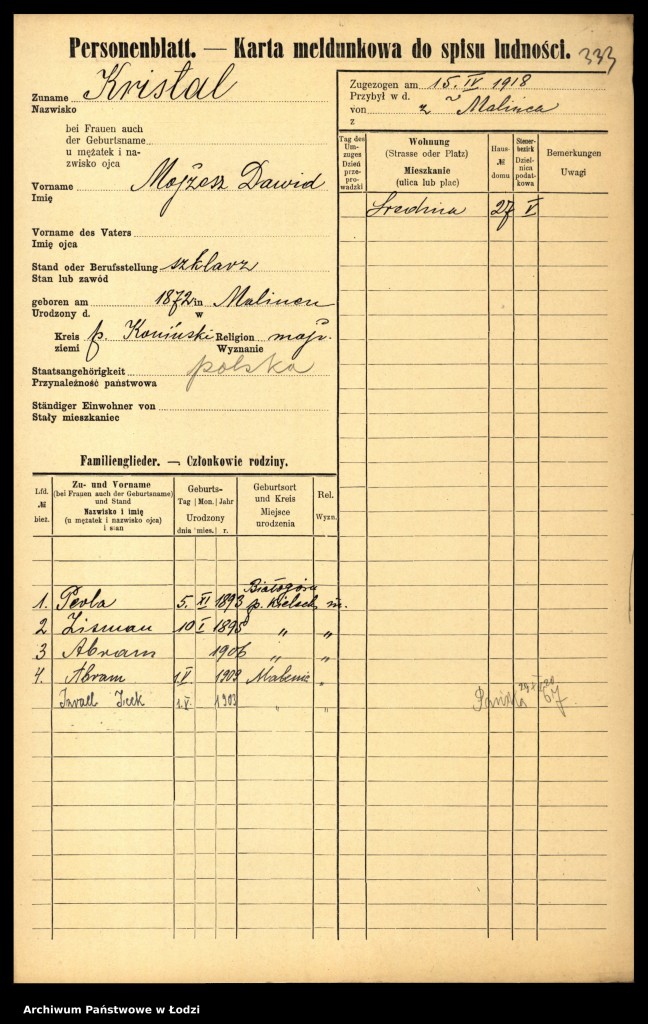 Personenblatt. — Karta meldunkowa do spisu ludności.
333
Zuname Kristal
Nazwisko
bei Frauen auch
der Geburtsname
u mężatek i na-
zwisko ojca
Vorname Mojżesz Dawid
Imię
Vorname des Vaters
Imię ojca
Stand oder Berufsstellung szklarz
Stan lub zawód
geboren am 1872 in
Urodzony d. w
Kreis p. Koniński Religion mojż.
ziemi Wyznanie
Staatsangehörigkeit polska
Przynależność państwowa
Ständiger Einwohner von
Stały mieszkaniec
Zugezogen am 15. IV 1918
Przybył w d.
von z Malińca
z
Tag des Um-zuges Dzień prze-pro-wadzki
Wohnung
(Strasse oder Platz)
Mieszkanie
(ulica lub plac)
Haus- № domu
Steuer-bezirk Dziel-nica podat-kowa
Bemerkungen
Uwagi
Średnia 27 V
Familienglieder. — Członkowie rodziny.
Lfd. № bież.
Zu- und Vorname
(bei Frauen auch der Geburtsname)
und Stand
Nazwisko i imię
(u mężatek i nazwisko ojca)
i stan
Geburts-
Tag Mon. Jahr
Urodzony
dnia mies. r.
Geburtsort
und Kreis
Miejsce
urodzenia
Rel.
Wyzn.
Białogóra
1. Perla 5. XI 1893 p. Kielsch. m.
2 Zisman 10 I 1898 " "
3 Abram 1906 " "
4. Abram 1. V 1909 "
Izrael Icek 1. V. 1903 " "
67
Archiwum Państwowe w Łodzi